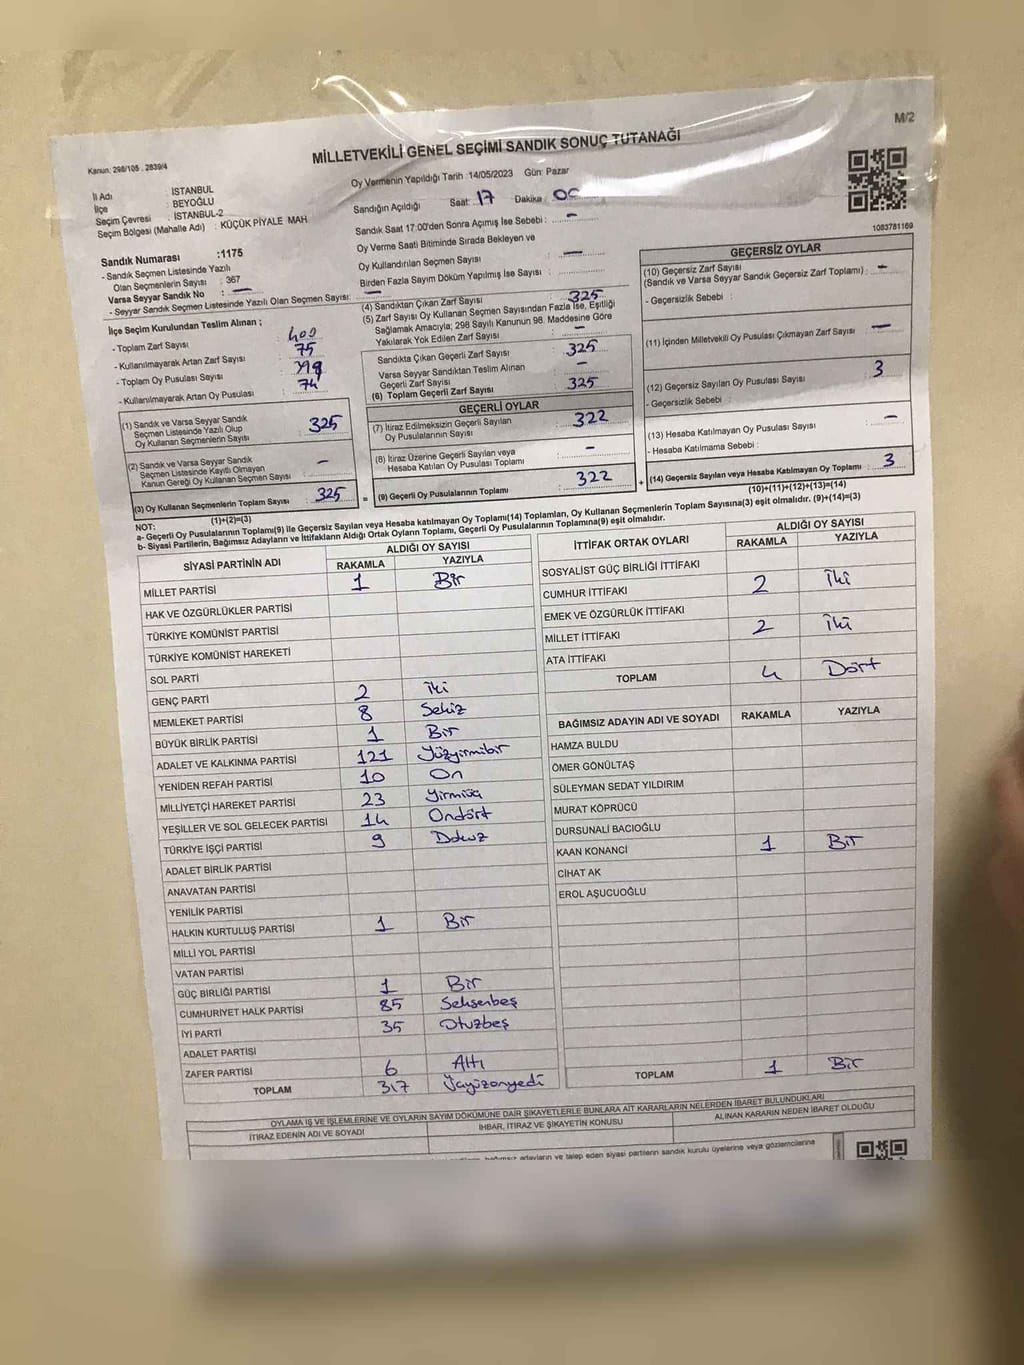 M/2
Kanun: 298/105 . 2839/4
MİLLETVEKİLİ GENEL SEÇİMİ SANDIK SONUÇ TUTANAĞI
İl Adı : İSTANBUL
İlçe : BEYOĞLU
Seçim Çevresi : İSTANBUL-2
Seçim Bölgesi (Mahalle Adı) : KÜÇÜK PİYALE MAH
Oy Vermenin Yapıldığı Tarih :14/05/2023 Gün: Pazar
Sandığın Açıldığı Saat: 17 Dakika
Sandık Saat 17:00'den Sonra Açımış İse Sebebi : -
Oy Verme Saati Bitiminde Sırada Bekleyen ve
Oy Kullandırılan Seçmen Sayısı : -
Birden Fazla Sayım Döküm Yapılmış İse Sayısı :
1083781169
Sandık Numarası :1175
- Sandık Seçmen Listesinde Yazılı
Olan Seçmenlerin Sayısı : 367
Varsa Seyyar Sandık No : -
- Seyyar Sandık Seçmen Listesinde Yazılı Olan Seçmen Sayısı: -
İlçe Seçim Kurulundan Teslim Alınan ;
- Toplam Zarf Sayısı : 400
- Kullanılmayarak Artan Zarf Sayısı : 75
- Toplam Oy Pusulası Sayısı :
- Kullanılmayarak Artan Oy Pusulası : 74
(1) Sandık ve Varsa Seyyar Sandık
Seçmen Listesinde Yazılı Olup
Oy Kullanan Seçmenlerin Sayısı : 325
(2) Sandık ve Varsa Seyyar Sandık
Seçmen Listesinde Kayıtlı Olmayan
Kanun Gereği Oy Kullanan Seçmen Sayısı : -
(3) Oy Kullanan Seçmenlerin Toplam Sayısı : 325
(1)+(2)=(3)
(4) Sandıktan Çıkan Zarf Sayısı : 325
(5) Zarf Sayısı Oy Kullanan Seçmen Sayısından Fazla İse, Eşitliği
Sağlamak Amacıyla; 298 Sayılı Kanunun 98. Maddesine Göre
Yakılarak Yok Edilen Zarf Sayısı : -
Sandıkta Çıkan Geçerli Zarf Sayısı : 325
Varsa Seyyar Sandıktan Teslim Alınan
Geçerli Zarf Sayısı : -
(6) Toplam Geçerli Zarf Sayısı : 325
GEÇERLİ OYLAR
(7) İtiraz Edilmeksizin Geçerli Sayılan
Oy Pusulalarının Sayısı : 322
(8) İtiraz Üzerine Geçerli Sayılan veya
Hesaba Katılan Oy Pusulası Toplamı : -
= (9) Geçerli Oy Pusulalarının Toplamı : 322
GEÇERSİZ OYLAR
(10) Geçersiz Zarf Sayısı
(Sandık ve Varsa Seyyar Sandık Geçersiz Zarf Toplamı) : -
- Geçersizlik Sebebi :
(11) İçinden Milletvekili Oy Pusulası Çıkmayan Zarf Sayısı : -
(12) Geçersiz Sayılan Oy Pusulası Sayısı : 3
- Geçersizlik Sebebi :
(13) Hesaba Katılmayan Oy Pusulası Sayısı : -
- Hesaba Katılmama Sebebi :
+ (14) Geçersiz Sayılan veya Hesaba Katılmayan Oy Toplamı : 3
(10)+(11)+(12)+(13)=(14)
NOT:
a- Geçerli Oy Pusulalarının Toplamı(9) ile Geçersiz Sayılan veya Hesaba katılmayan Oy Toplamı(14) Toplamları, Oy Kullanan Seçmenlerin Toplam Sayısına(3) eşit olmalıdır. (9)+(14)=(3)
b- Siyasi Partilerin, Bağımsız Adayların ve İttifakların Aldığı Ortak Oyların Toplamı, Geçerli Oy Pusulalarının Toplamına(9) eşit olmalıdır.
SİYASİ PARTİNİN ADI ALDIĞI OY SAYISI
RAKAMLA YAZIYLA
MİLLET PARTİSİ 1 Bir
HAK VE ÖZGÜRLÜKLER PARTİSİ
TÜRKİYE KOMÜNİST PARTİSİ
TÜRKİYE KOMÜNİST HAREKETİ
SOL PARTİ
GENÇ PARTİ 2 İki
MEMLEKET PARTİSİ 8 Sekiz
BÜYÜK BİRLİK PARTİSİ 1 Bir
ADALET VE KALKINMA PARTİSİ 121 Yüzyirmibir
YENİDEN REFAH PARTİSİ 10 On
MİLLİYETÇİ HAREKET PARTİSİ 23 Yirmiüç
YEŞİLLER VE SOL GELECEK PARTİSİ 14 Ondört
TÜRKİYE İŞÇİ PARTİSİ 9 Dokuz
ADALET BİRLİK PARTİSİ
ANAVATAN PARTİSİ
YENİLİK PARTİSİ
HALKIN KURTULUŞ PARTİSİ 1 Bir
MİLLİ YOL PARTİSİ
VATAN PARTİSİ
GÜÇ BİRLİĞİ PARTİSİ 1 Bir
CUMHURİYET HALK PARTİSİ 85 Seksenbeş
İYİ PARTİ 35 Otuzbeş
ADALET PARTİSİ
ZAFER PARTİSİ 6 Altı
TOPLAM 317 Üçyüzonyedi
İTTİFAK ORTAK OYLARI ALDIĞI OY SAYISI
RAKAMLA YAZIYLA
SOSYALİST GÜÇ BİRLİĞİ İTTİFAKI
CUMHUR İTTİFAKI 2 İki
EMEK VE ÖZGÜRLÜK İTTİFAKI
MİLLET İTTİFAKI 2 İki
ATA İTTİFAKI
TOPLAM 4 Dört
BAĞIMSIZ ADAYIN ADI VE SOYADI RAKAMLA YAZIYLA
HAMZA BULDU
ÖMER GÖNÜLTAŞ
SÜLEYMAN SEDAT YILDIRIM
MURAT KÖPRÜCÜ
DURSUNALİ BACIOĞLU
KAAN KONANCİ 1 Bir
CİHAT AK
EROL AŞUCUOĞLU
TOPLAM 1 Bir
OYLAMA İŞ VE İŞLEMLERİNE VE OYLARIN SAYIM DÖKÜMÜNE DAİR ŞİKAYETLERLE BUNLARA AİT KARARLARIN NELERDEN İBARET BULUNDUKLARI
İTİRAZ EDENİN ADI VE SOYADI İHBAR, İTİRAZ VE ŞİKAYETİN KONUSU ALINAN KARARIN NEDEN İBARET OLDUĞU
bağımsız adayların ve talep eden siyasi partilerin sandık kurulu üyelerine veya gözlemcilerine